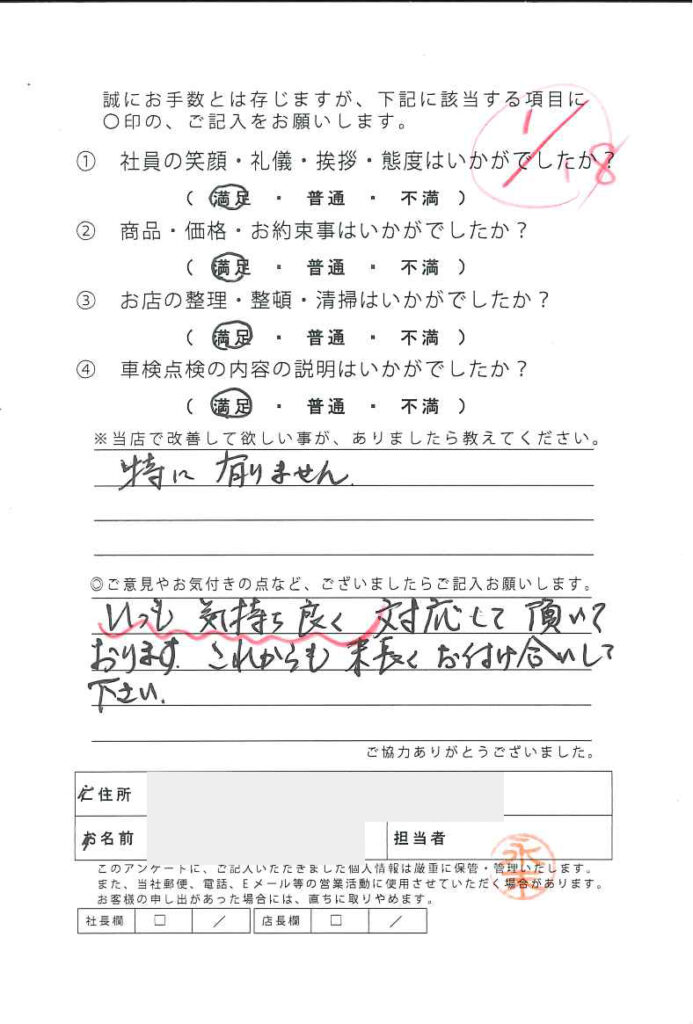 誠にお手数とは存じますが、下記に該当する項目に
〇印の、ご記入をお願いします。
1/18
① 社員の笑顔・礼儀・挨拶・態度はいかがでしたか？
( 満足 ・ 普通 ・ 不満 )
② 商品・価格・お約束事はいかがでしたか？
( 満足 ・ 普通 ・ 不満 )
③ お店の整理・整頓・清掃はいかがでしたか？
( 満足 ・ 普通 ・ 不満 )
④ 車検点検の内容の説明はいかがでしたか？
( 満足 ・ 普通 ・ 不満 )
※当店で改善して欲しい事が、ありましたら教えてください。
特に有りません.
◎ご意見やお気付きの点など、ございましたらご記入お願いします。
いつも 気持ち良く 対応して 頂いて
おります. これからも 末長く お付け合いして
下さい.
ご協力ありがとうございました。
ご住所
お名前
担当者
このアンケートに、ご記入いただきました個人情報は厳重に保管・管理いたします。
また、当社郵便、電話、Eメール等の営業活動に使用させていただく場合があります。
お客様の申し出があった場合には、直ちに取りやめます。
社長欄 □ ／ 店長欄 □ ／